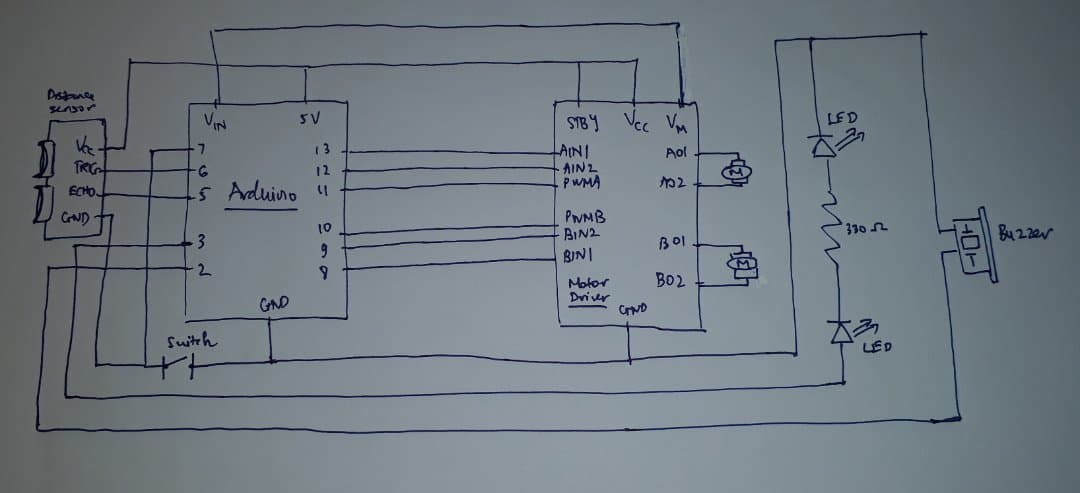 Distance
sensor
Vcc
TRIG
ECHO
GND
VIN
5V
7
6
5
3
2
Arduino
13
12
11
10
9
8
GND
Switch
STBY
Vcc
VM
AIN1
AIN2
PWMA
PWMB
BIN2
BIN1
A01
A02
B01
B02
Motor
Driver
GND
M
M
LED
330 Ω
LED
Buzzer